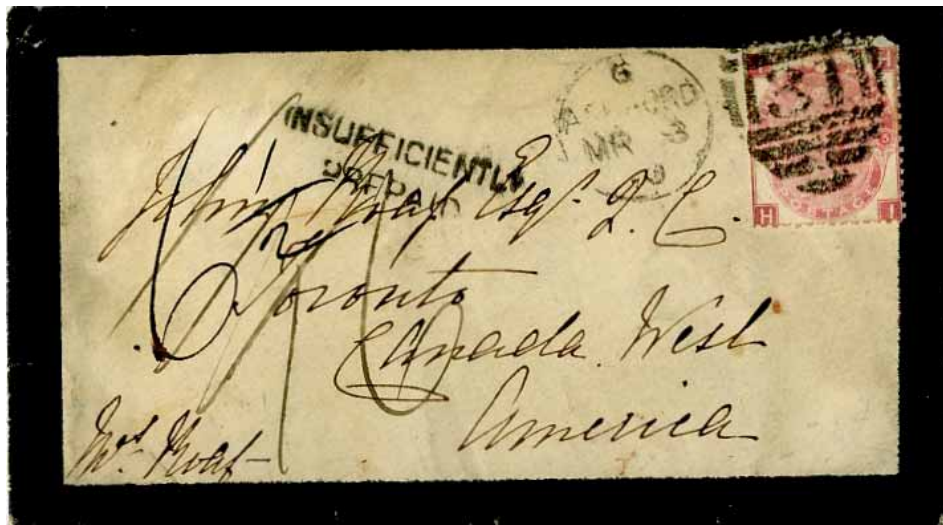 INSUFFICIENTLY
PREPAID
G
ASHFORD
MR 3
H
H I
John Roaf Esqr. Q. C.
Toronto
Canada West
America
Mrs. Roaf